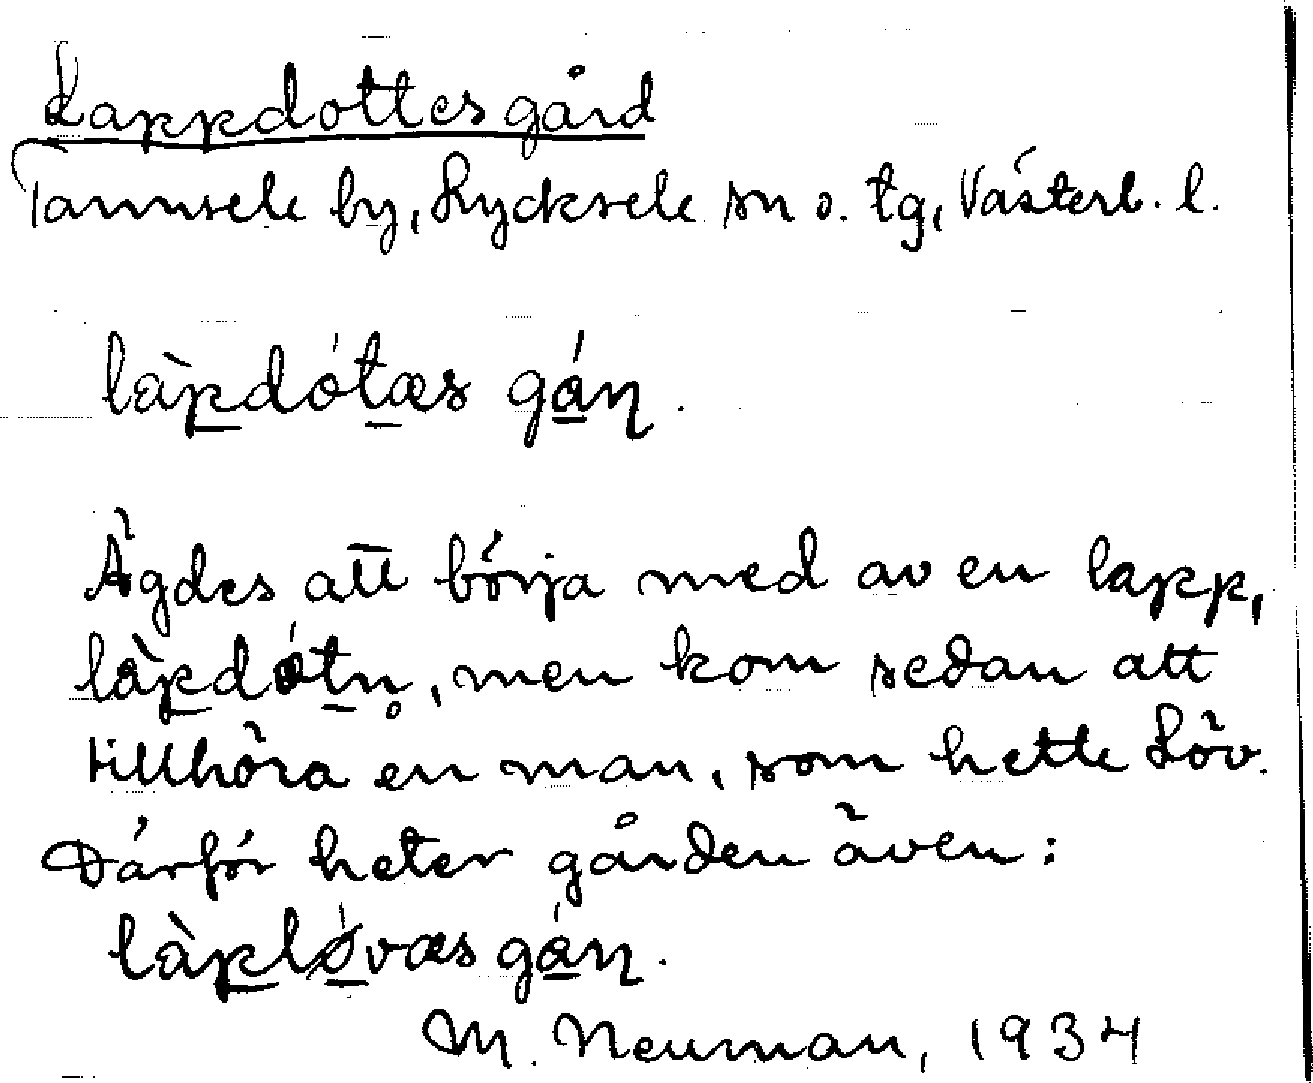 Lappdottes gård
Tannsele by, Lycksele sn o. tg, Västerb. l.
làpdótæs gáɳ.
Ägdes att börja med av en lapp,
làpdótn̥, men kom sedan att
tillhöra en man, som hette Löv.
Därför heter gården även:
làpló̱væs gáɳ.
M. Neuman, 1934